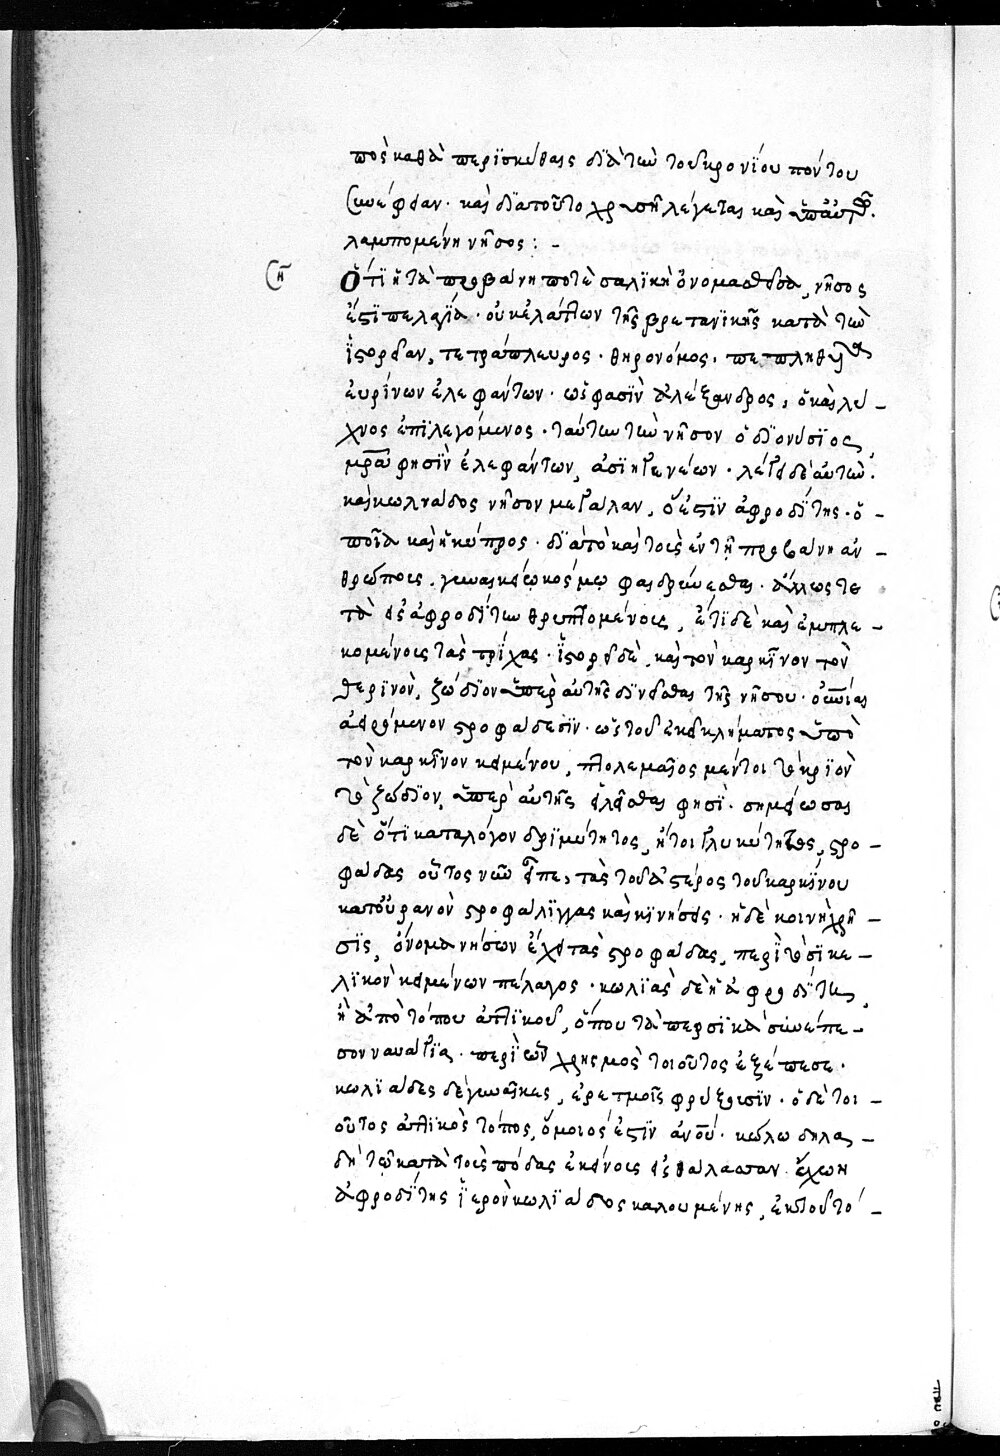 πὸς καθὰ περϊσκύθαις δϊὰ τὴν τοῦ κρονίου πόντου
συνέφειαν· καὶ δϊατοῦτο χρυσῆ λέγεται καὶ ὑπ' αὐτοῦ
λαμπομένη νῆσος: -
η
Ὅτι ἡ ταπροβάνη ποτὲ σαλϊκὴ ὀνομασθεῖσα, νῆσος
ἐστὶ πελαγία· οὐκ ἐλάττων τῆς βρετανϊκῆς κατὰ τὴν
ἱστορίαν, τετράπλευρος· θηρονόμος· πεπληθυῖα
εὐρίνων ἐλεφάντων· ὥς φασὶν ἀλέξανδρος, ὁ καὶ λύ -
χνος ἐπϊλεγόμενος· ταύτην τὴν νῆσον ὁ δϊονύσϊος
μρᾶ φησϊν ἐλεφάντων, ἀσϊητενέων· λέγει δὲ αὐτὴν
καὶ κωλιάδος νῆσον μεγάλην, ὅ ἐστϊν ἀφροδίτης· ὁ -
ποία καὶ ἡ κύπρος· δϊατὸ καὶ τοὺς ἐν τῇ προβάνη ἀν -
θρώπους, γυναικείῳ κόσμῳ φαιδρύνεσθαι· ἄλλως τε
τὰ εἰς ἀφροδίτην θρυπτομένους, ἔτϊ δὲ καὶ ἐμπλε -
κομένους τὰς τρίχας· ἱστορεῖ δὲ, καὶ τὸν καρκῖνον τὸν
θερινὸν, ζώδϊον ὑπὲρ αὐτῆς δϊνεῖσθαι τῆς νήσου· οἵας
ἀειρόμενον στροφάδεσϊν· ὡς τοῦ ἐκεῖ κλήματος ὑπὸ
τὸν καρκῖνον κειμένου, πτολεμαῖος μέντοι τὸ κρϊὸν
τὸ ζώδϊον, ὑπὲρ αὐτῆς ἐλθεῖσθαι φησὶ· σημείωσαι
δὲ ὅτϊ καταλόγον δρϊμύτητος, ἤτοι γλυκύτητος, στρο -
φάδας οὗτος νῦν εἶπε, τὰς τοῦ ἀστέρος τοῦ καρκίνου
κατ' οὐρανὸν στροφάλϊγγας καὶ κϊνήσεις· ἡ δὲ κοινὴ χρῆ -
σϊς, ὄνομα νήσων ἔχει τὰς στροφάδας, περὶ τὸ σϊκε -
λϊκὸν κειμένων πέλαγος· κωλϊὰς δὲ ἡ ἀφροδίτης,
ἢ ἀπὸ τόπου ἀττϊκοῦ, ὅπου τὰ περσϊκὰ συνέπε -
σον ναυάγϊα· περὶ ὧν χρησμὸς τοιοῦτος ἐξέπεσε·
κωλϊάδες δὲ γυναῖκες, ἐρετμοῖς φρύξουσϊν· ὁ δὲ τοι -
οῦτος ἀττϊκὸς τόπος, ὅμοιός ἐστϊν ἀνοῦ· κώλω δηλα -
δὴ τῷ κατὰ τοὺς πόδας ἐκείνοις εἰς θάλασσαν ἔχων
ἀφροδίτης ἱερὸν κωλϊάδος καλουμένης, ἐκ τοῦ τό -